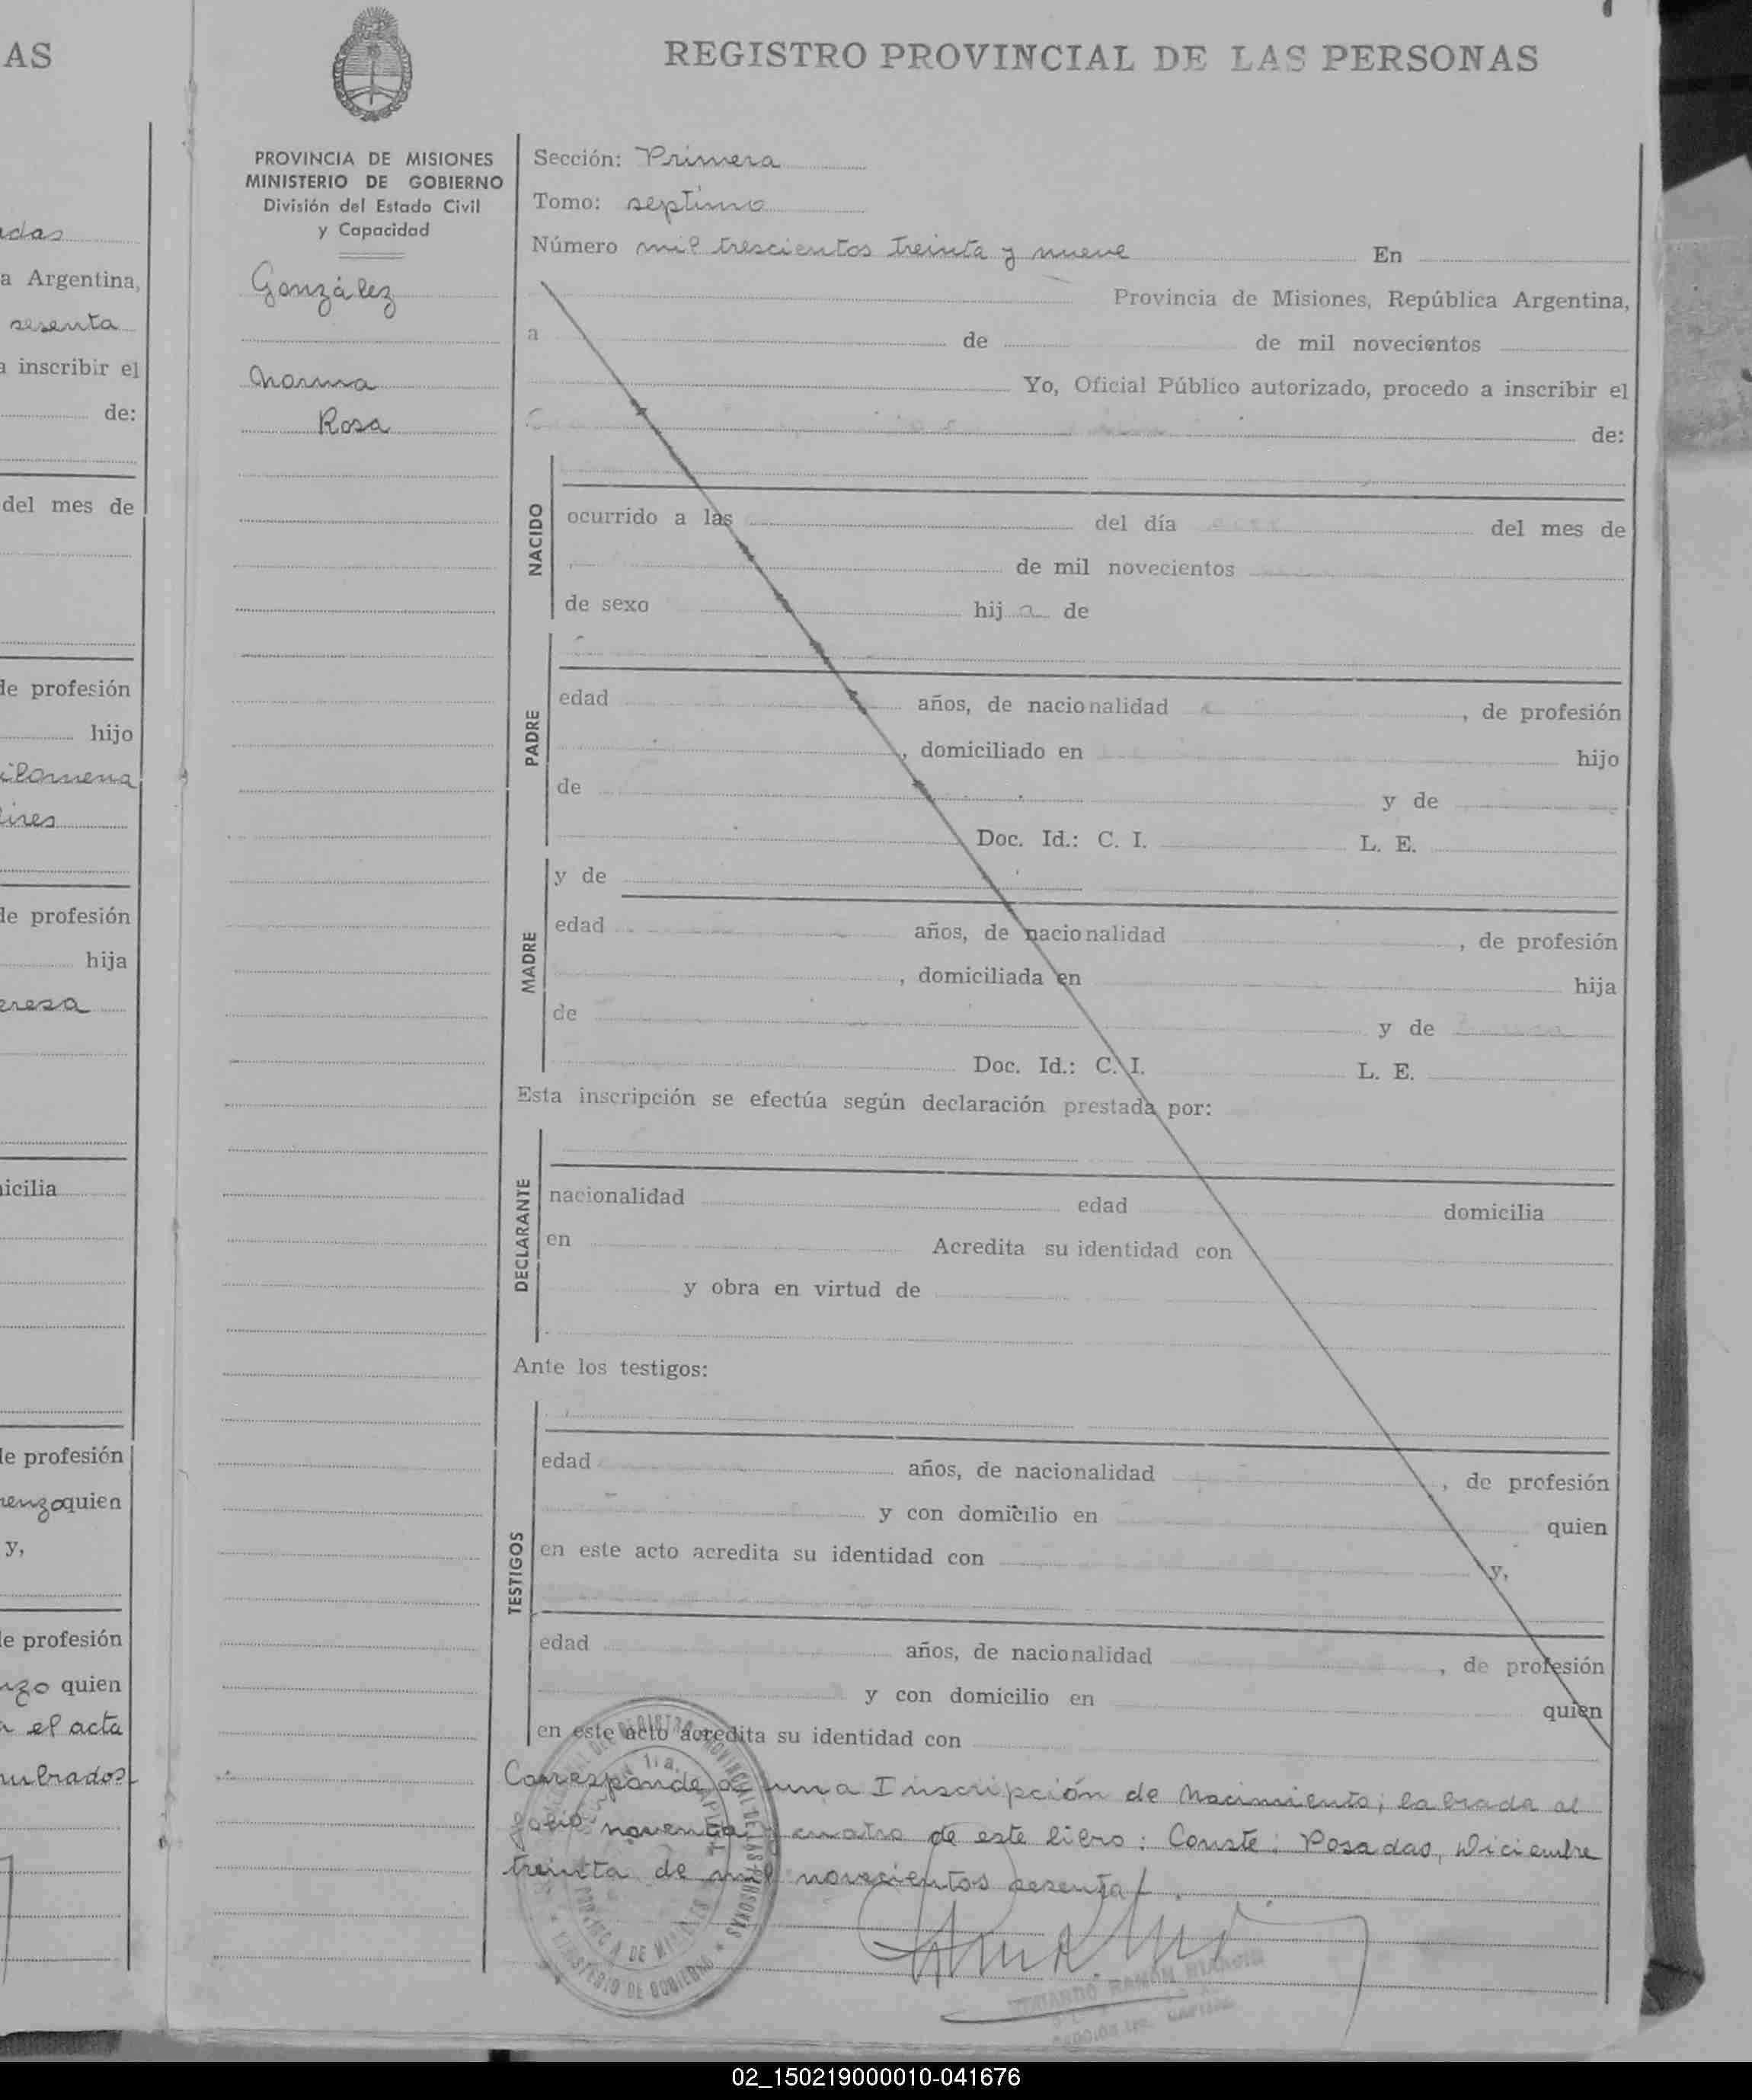 AS
adas
a Argentina,
sesenta
a inscribir el
de:
del mes de
de profesión
hijo
ilomena
ires
de profesión
hija
eresa
icilia
de profesión
renzo quien
y,
de profesión
nzo quien
a el acta
mbrados
REGISTRO PROVINCIAL DE LAS PERSONAS
PROVINCIA DE MISIONES
MINISTERIO DE GOBIERNO
División del Estado Civil
y Capacidad
González
Norma
Rosa
Sección: Primera
Tomo: septimo
Número mil trescientos treinta y nueve En
Provincia de Misiones, República Argentina,
a de de mil novecientos
Yo, Oficial Público autorizado, procedo a inscribir el
de:
NACIDO
ocurrido a las del día del mes de
de mil novecientos
de sexo hij a de
PADRE
edad años, de nacionalidad , de profesión
, domiciliado en hijo
de y de
Doc. Id.: C. I. L. E.
MADRE
y de
edad años, de nacionalidad , de profesión
, domiciliada en hija
de y de
Doc. Id.: C. I. L. E.
Esta inscripción se efectúa según declaración prestada por:
DECLARANTE
nacionalidad edad domicilia
en Acredita su identidad con
y obra en virtud de
Ante los testigos:
TESTIGOS
edad años, de nacionalidad , de profesión
y con domicilio en quien
en este acto acredita su identidad con y,
edad años, de nacionalidad , de profesión
y con domicilio en quien
en este acto acredita su identidad con
Corresponde a una Inscripción de Nacimiento; labrada al
folio noventa y cuatro de este libro: Conste: Posadas, Diciembre
treinta de mil novecientos sesenta
REGISTRO PROVINCIAL DE LAS PERSONAS
PROVINCIA DE MISIONES
MINISTERIO DE GOBIERNO
EDUARDO RAMON BIANCHI
SECCION 1ra. CAPITAL
02_150219000010-041676